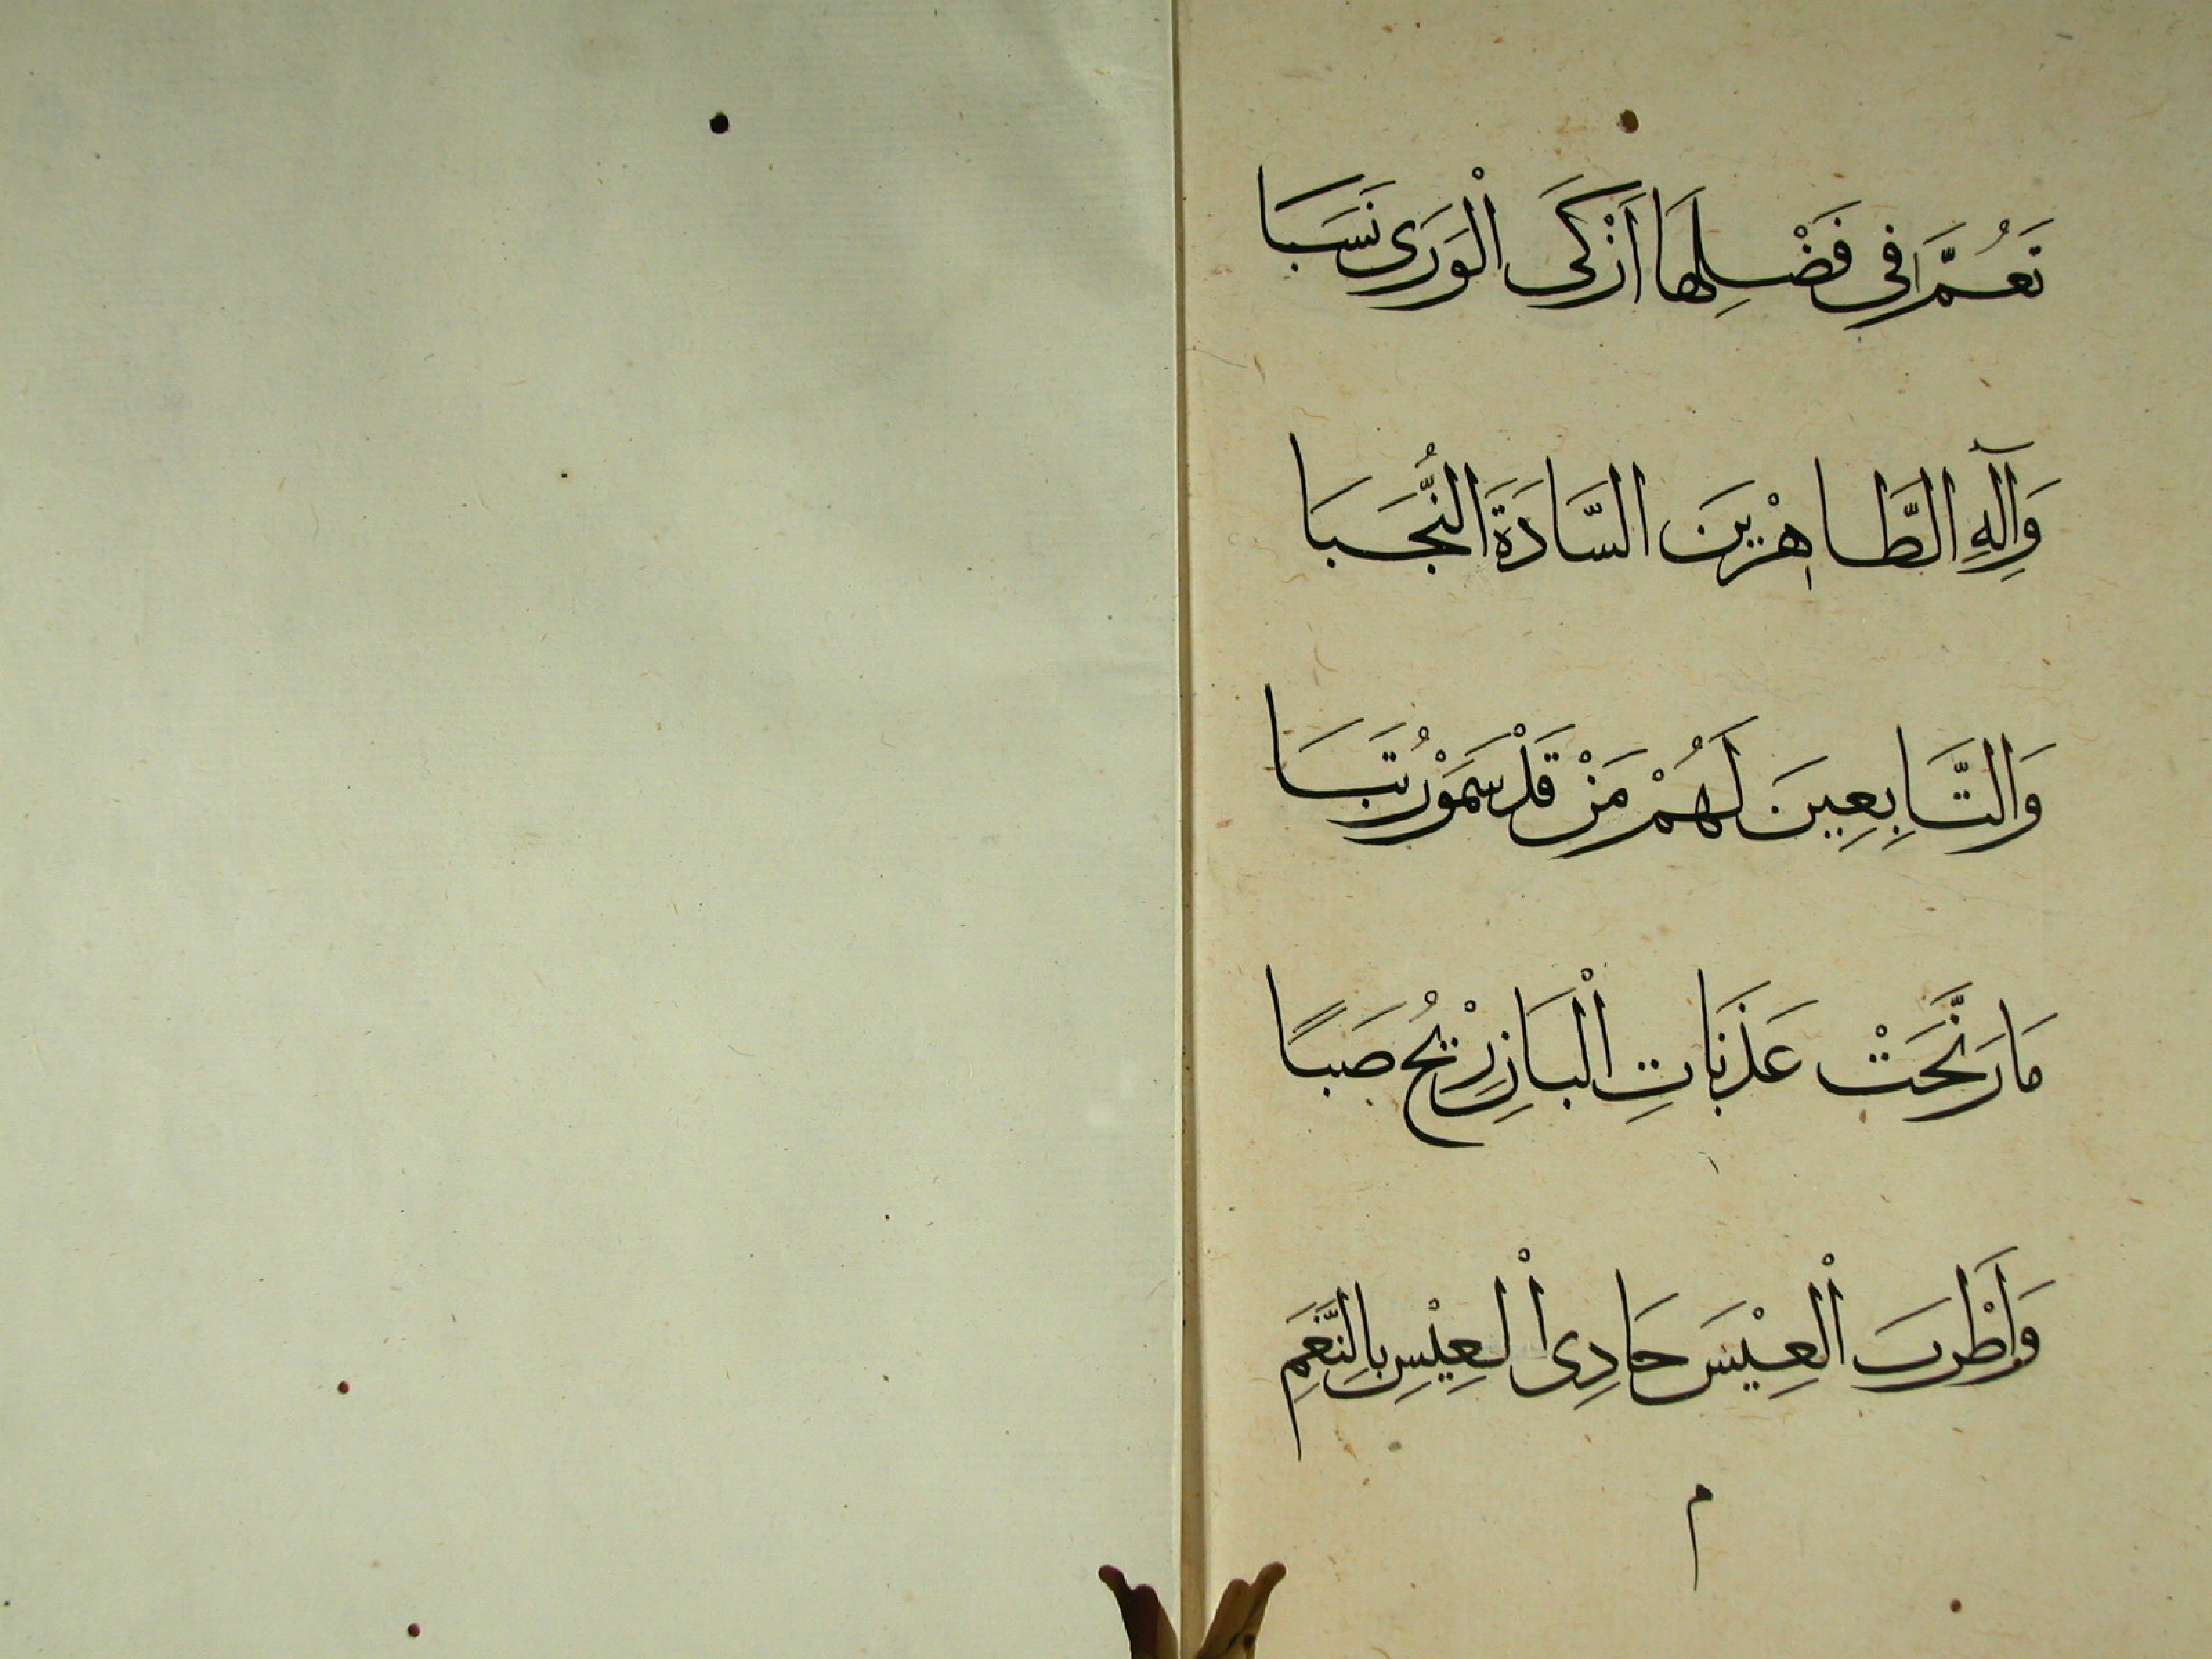 تَعُمَّرَا فِي فَضْلِهَا أَزْكَى الْوَرَى نَسَبَا
وَآلِهِ الطَّاهِرْينَ السَّادَةَ النُّجَبَا
وَالتَّابِعِينَ لَهُمْ مَنْ قَدْ سَمَوْ رُتَبَا
مَا رَنَّحَتْ عَذَبَاتِ الْبَانِ رِيْحُ صَبًا
وَأَطْرَبَ الْعِيْسَ حَادِى الْعِيْسِ بِالنَّغَمِ
م